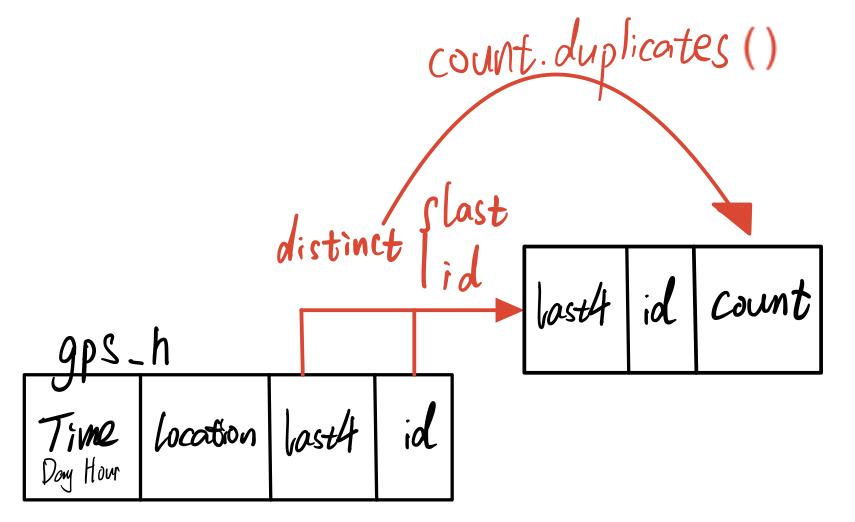 count.duplicates()
distinct { last
id
last4 id count
gps_h
Time Location last4 id
Day Hour